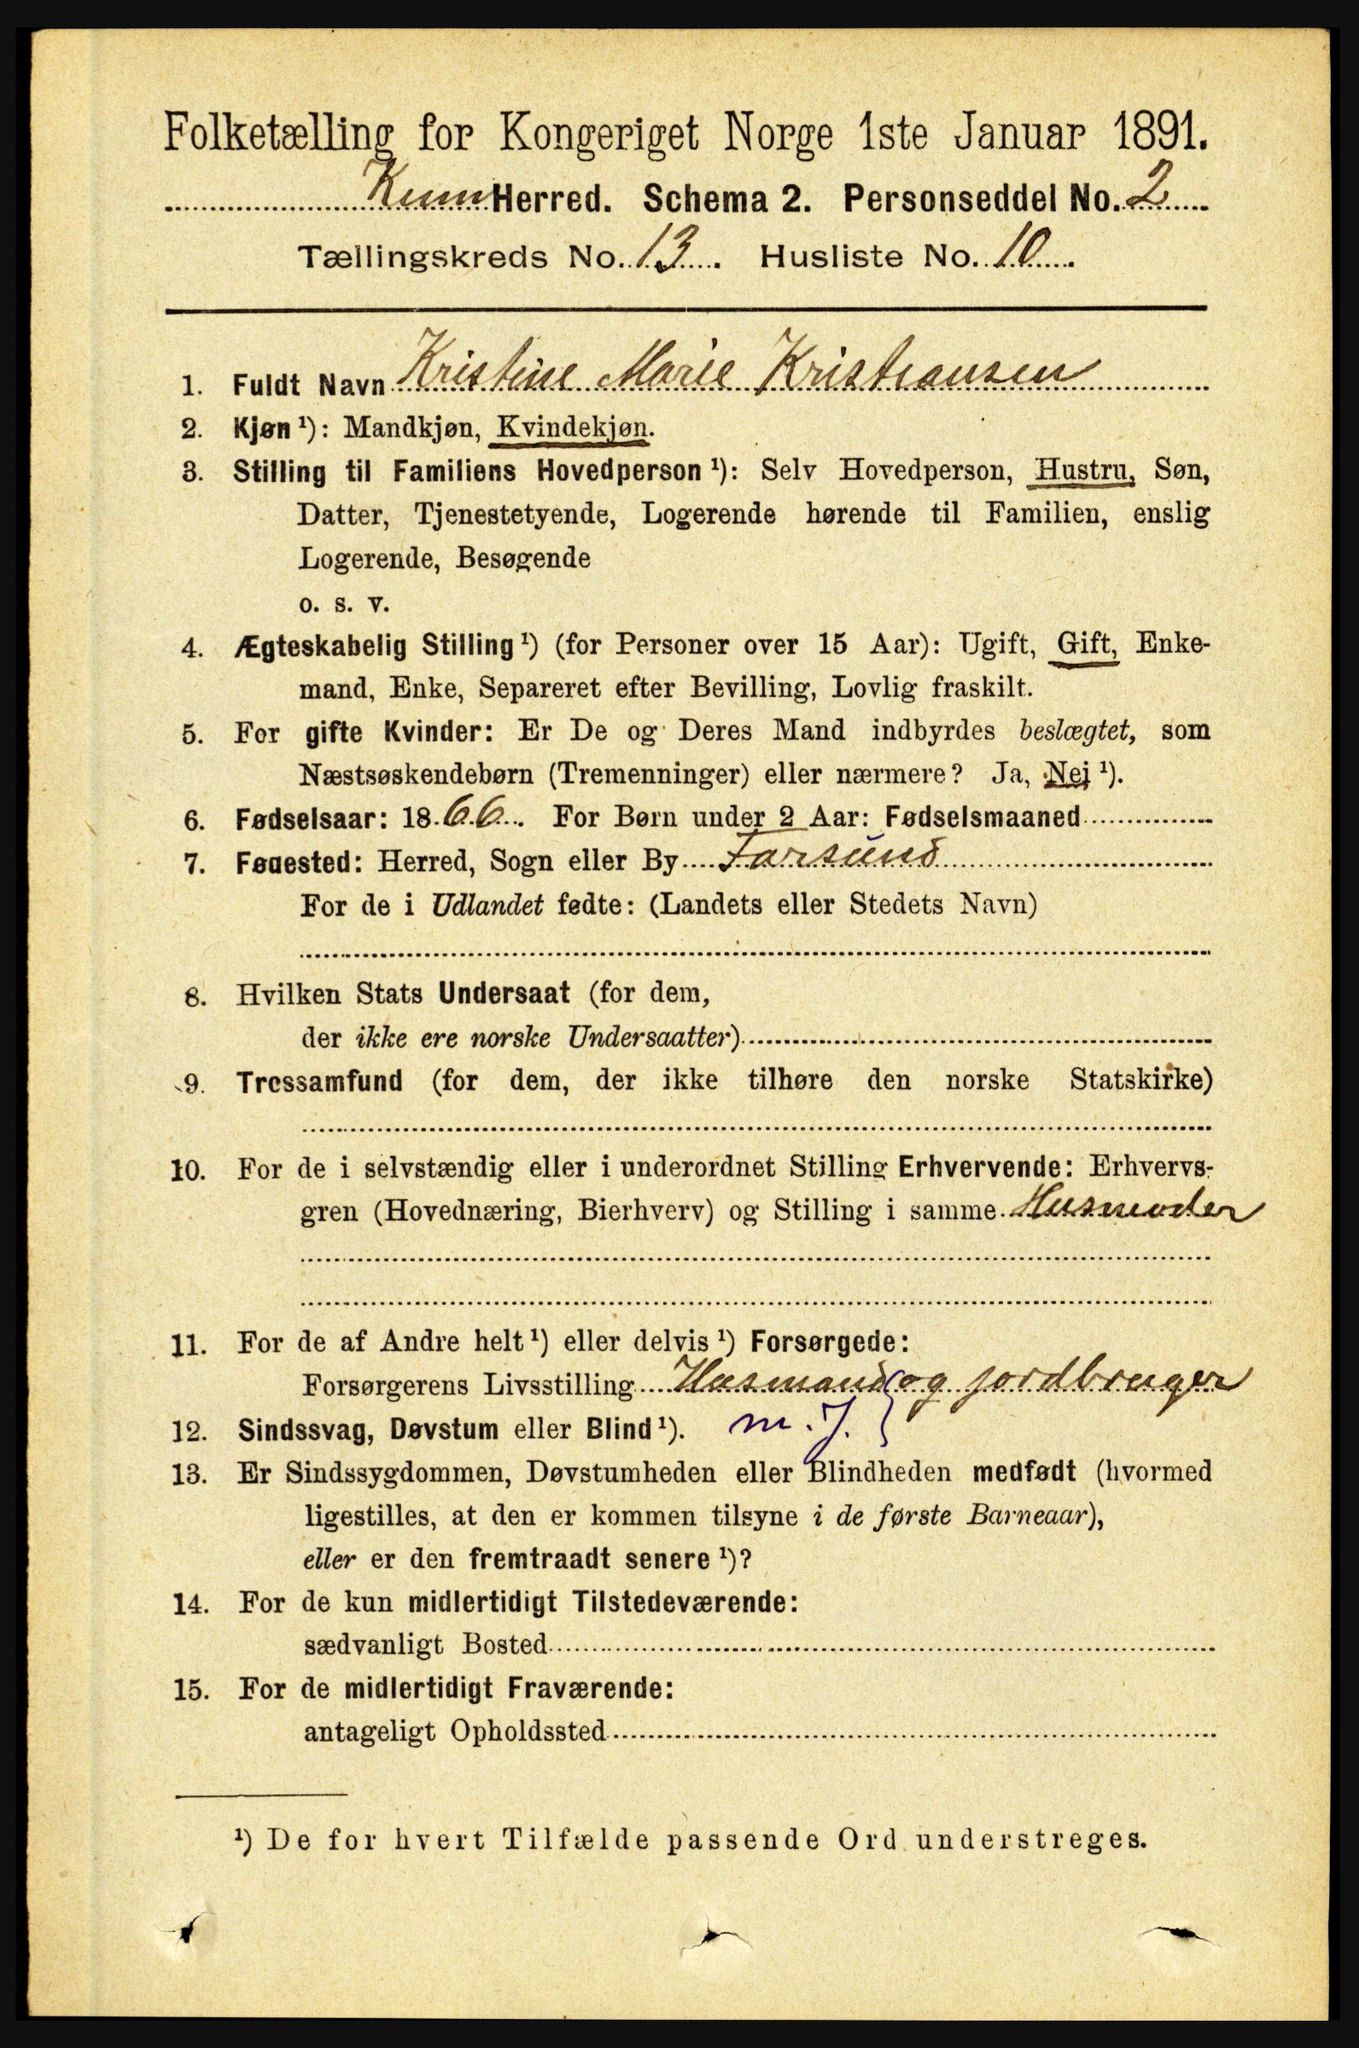 Folketælling for Kongeriget Norge 1ste Januar 1891.
Herred. Schema 2. Personseddel No. 2
Tællingskreds No. 13. Husliste No. 10.
1. Fuldt Navn Kristine Marie Kristiansen
2. Kjøn ¹): Mandkjøn, Kvindekjøn.
3. Stilling til Familiens Hovedperson ¹): Selv Hovedperson, Hustru, Søn,
Datter, Tjenestetyende, Logerende hørende til Familien, enslig
Logerende, Besøgende
o. s. v.
4. Ægteskabelig Stilling ¹) (for Personer over 15 Aar): Ugift, Gift, Enke-
mand, Enke, Separeret efter Bevilling, Lovlig fraskilt.
5. For gifte Kvinder: Er De og Deres Mand indbyrdes beslægtet, som
Næstsøskendebørn (Tremenninger) eller nærmere? Ja, Nej ¹).
6. Fødselsaar: 1866. For Børn under 2 Aar: Fødselsmaaned
7. Føuested: Herred, Sogn eller By Farsund
For de i Udlandet fødte: (Landets eller Stedets Navn)
8. Hvilken Stats Undersaat (for dem,
der ikke ere norske Undersaatter)
9. Trossamfund (for dem, der ikke tilhøre den norske Statskirke)
10. For de i selvstændig eller i underordnet Stilling Erhvervende: Erhvervs-
gren (Hovednæring, Bierhverv) og Stilling i samme Husmoder
11. For de af Andre helt ¹) eller delvis ¹) Forsørgede:
Forsørgerens Livsstilling Husmand og jordbruger
12. Sindssvag, Døvstum eller Blind ¹). m. J.
13. Er Sindssygdommen, Døvstumheden eller Blindheden medfødt (hvormed
ligestilles, at den er kommen tilsyne i de første Barneaar),
eller er den fremtraadt senere ¹)?
14. For de kun midlertidigt Tilstedeværende:
sædvanligt Bosted
15. For de midlertidigt Fraværende:
antageligt Opholdssted
¹) De for hvert Tilfælde passende Ord understreges.